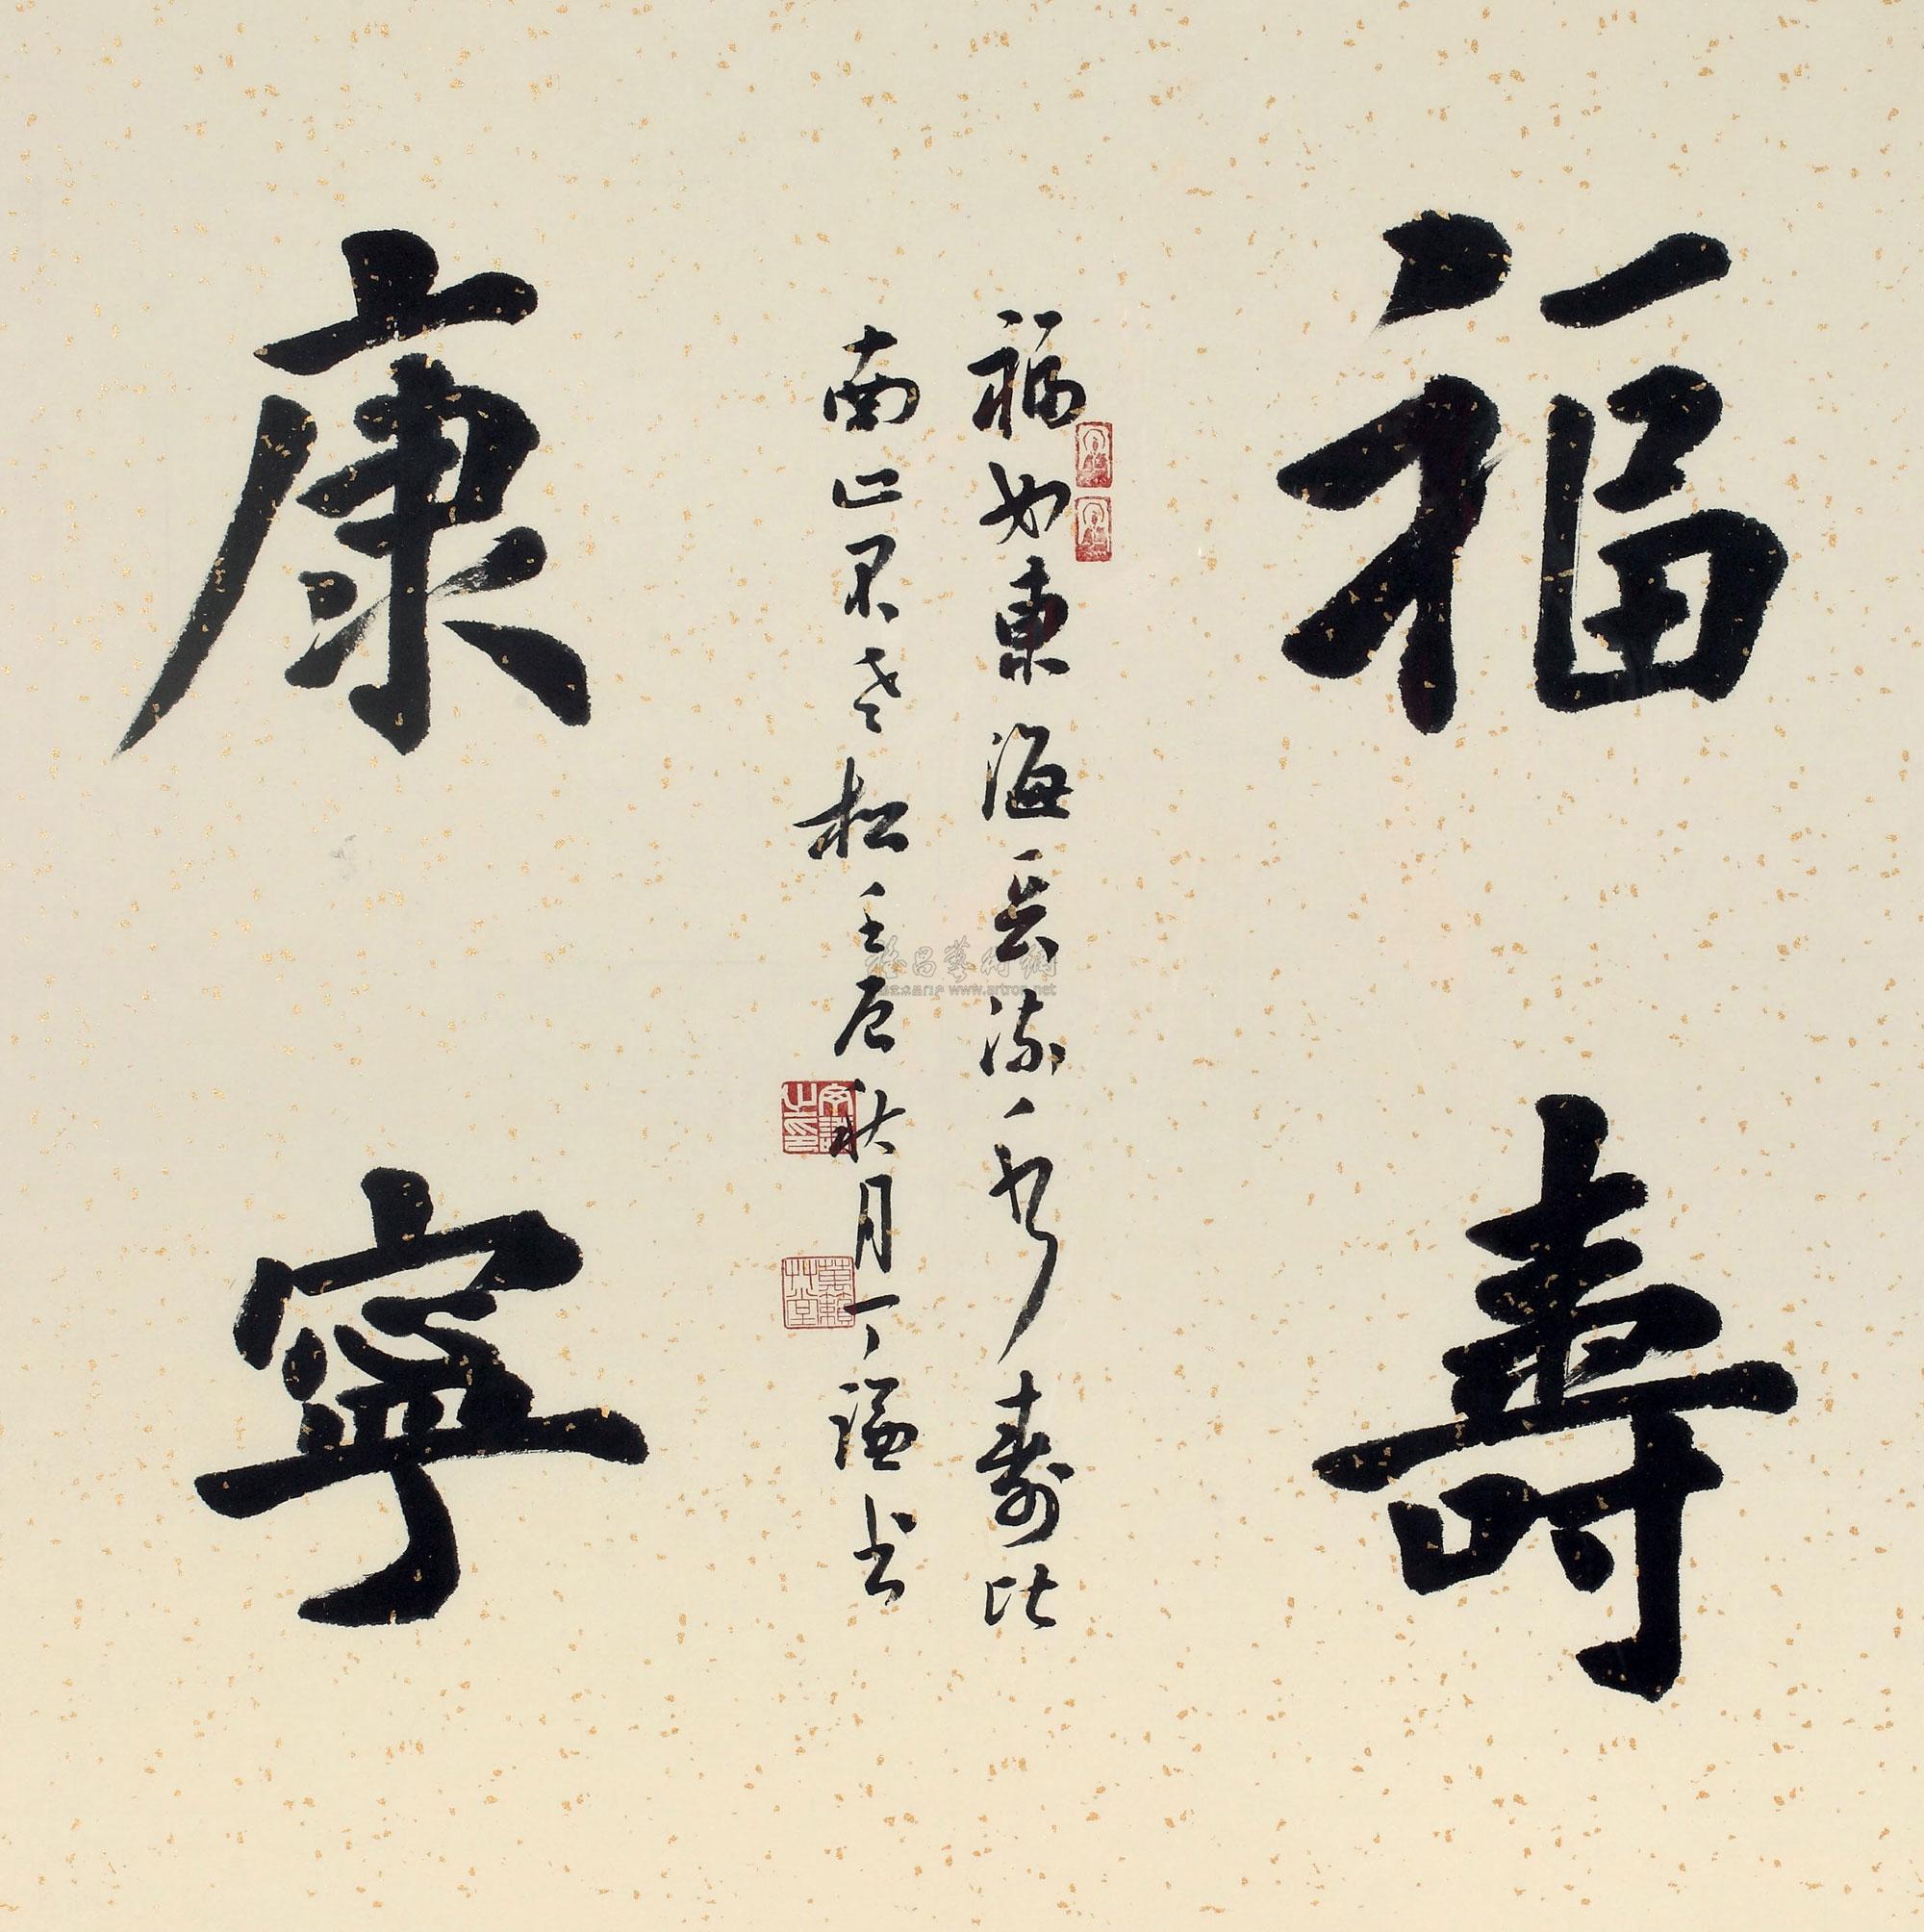 福壽
康寧
福如東海長流水壽比
南山不老松壬辰秋月一謙書
www.artron.net